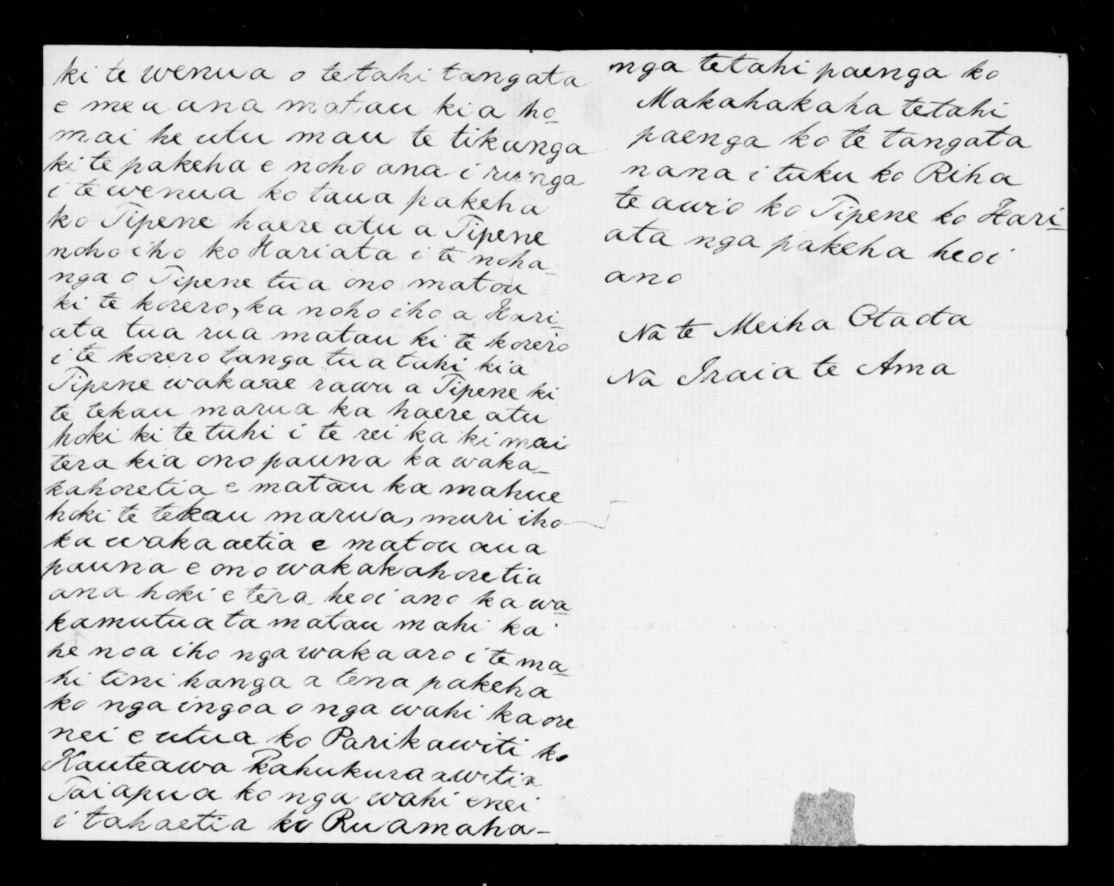 ki te wenua o tetahi tangata
e mea ana matau kia ho-
mai he utu mau te tikanga
ki te pakeha e noho ana i runga
i te wenua ko taua pakeha
ko Tipene haere atu a Tipene
noho iho ko Hariata i te noha-
nga o Tipene tua ono matou
ki te korero, ka noho iho a Hari-
ata tua rua matau ki te korero
i te korero tanga tua tahi kia
Tipene wakaae rawa a Tipene ki
te tekau marua ka haere atu
hoki ki te tuhi i te rei ka ki mai
tera kia ono pauna ka waka-
kahoretia e matau ka mahue
hoki te tekau marua, muri iho
ka wakaaetia e matou aua
pauna e ono wakakahoretia
ana hoki e tera heoi ano ka wa-
kamutua ta matau mahi ka
he noa iho nga wakaaro i te ma-
hi tini hanga a tena pakeha
ko nga ingoa o nga wahi kaore
nei e utua ko Parikawiti ko
Kauteawa Kahukura awitia
Taiapua ko nga wahi enei
i takaetia ko Ruamaha-
nga tetahi paenga ko
Makahakaha tetahi
paenga ko te tangata
nana i tuku ko Riha
te awio ko Tipene ko Hari-
ata nga pakeha heoi
ano
Na te Meiha Otaota
Na Iraia te Ama